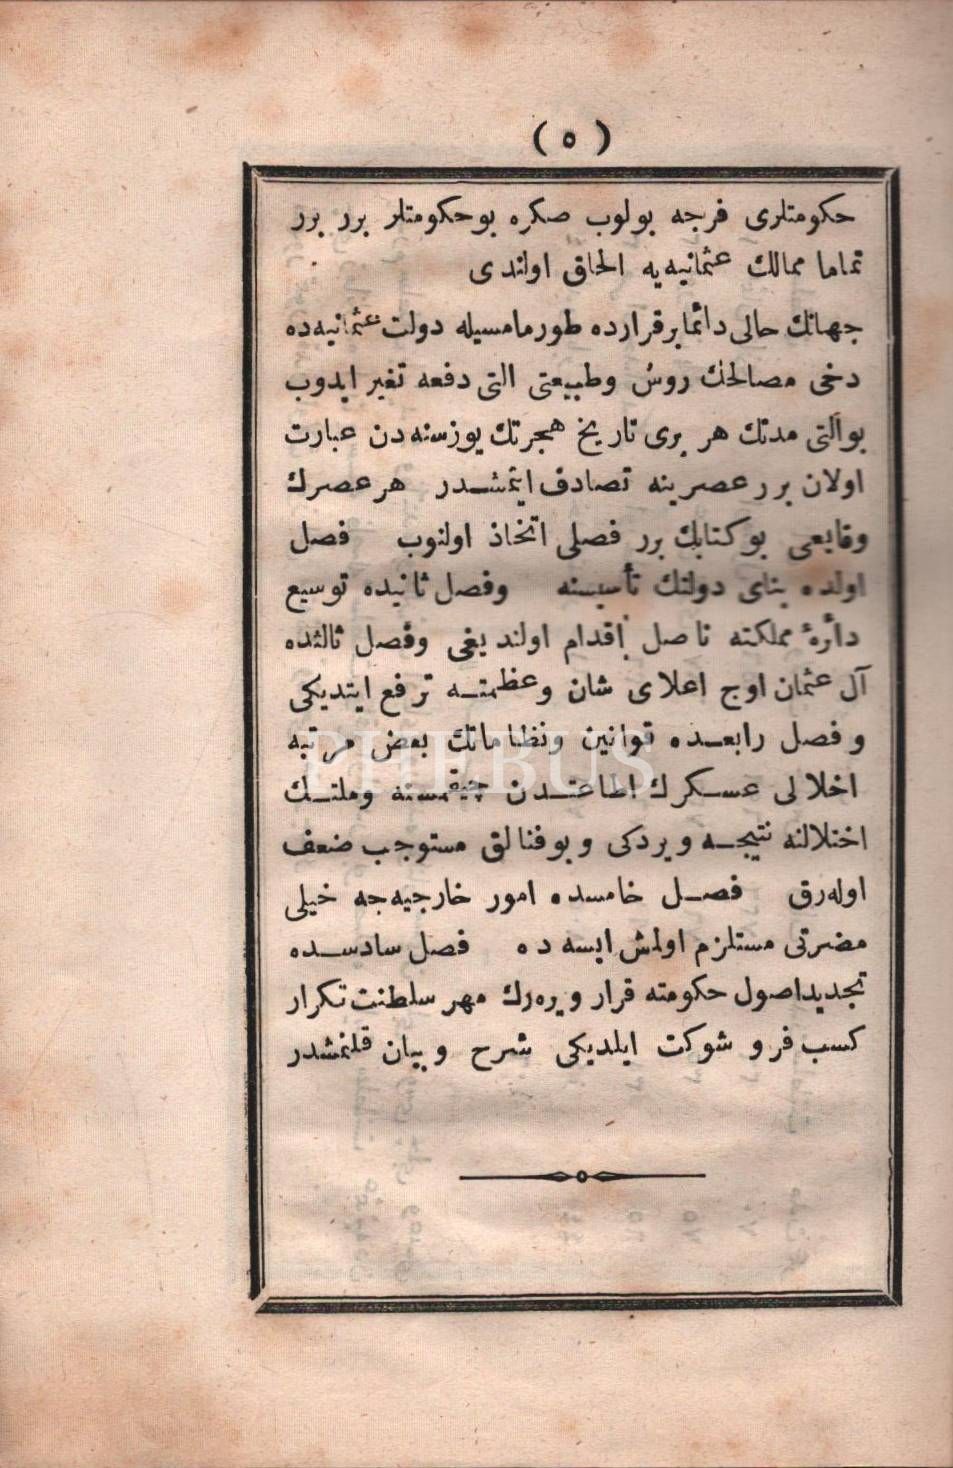 ( ٥ )
حكومتلرى فرجه بولوب صكره بوحكومتلر برر برر
تماما ممالك عثمانيه يه الحاق اولندى
جهانك حالى دائما برقرارده طورمامسيله دولت عثمانيه ده
دخى مصالحك روش وطبيعتى التى دفعه تغير ايدوب
بوالتى مدتك هر برى تاريخ هجرتك يوزسنه دن عبارت
اولان برر عصرينه تصادف ايتمشدر هر عصرك
وقايعى بو كتابك برر فصلى اتخاذ اولنوب فصل
اولده بناى دولتك تأسيسنه وفصل ثانيده توسيع
دائرۀ مملكته ناصل اقدام اولنديغى وفصل ثالثده
آل عثمان اوج اعلاى شان وعظمته ترفع ايتديكى
وفصل رابعده قوانين ونظاماتك بعض مرتبه
اخلالى عسكرك اطاعتدن چيقمسنه وملتك
اختلالنه نتيجه ويردكى و بوفنالق مستوجب ضعف
اوله رق فصل خامسده امور خارجيه جه خيلى
مضرتى مستلزم اولمش ايسه ده فصل سادسده
تجديد اصول حكومته قرار ويره رك مهر سلطنت تكرار
كسب فر و شوكت ايلديكى شرح و بيان قلنمشدر
PHEBUS